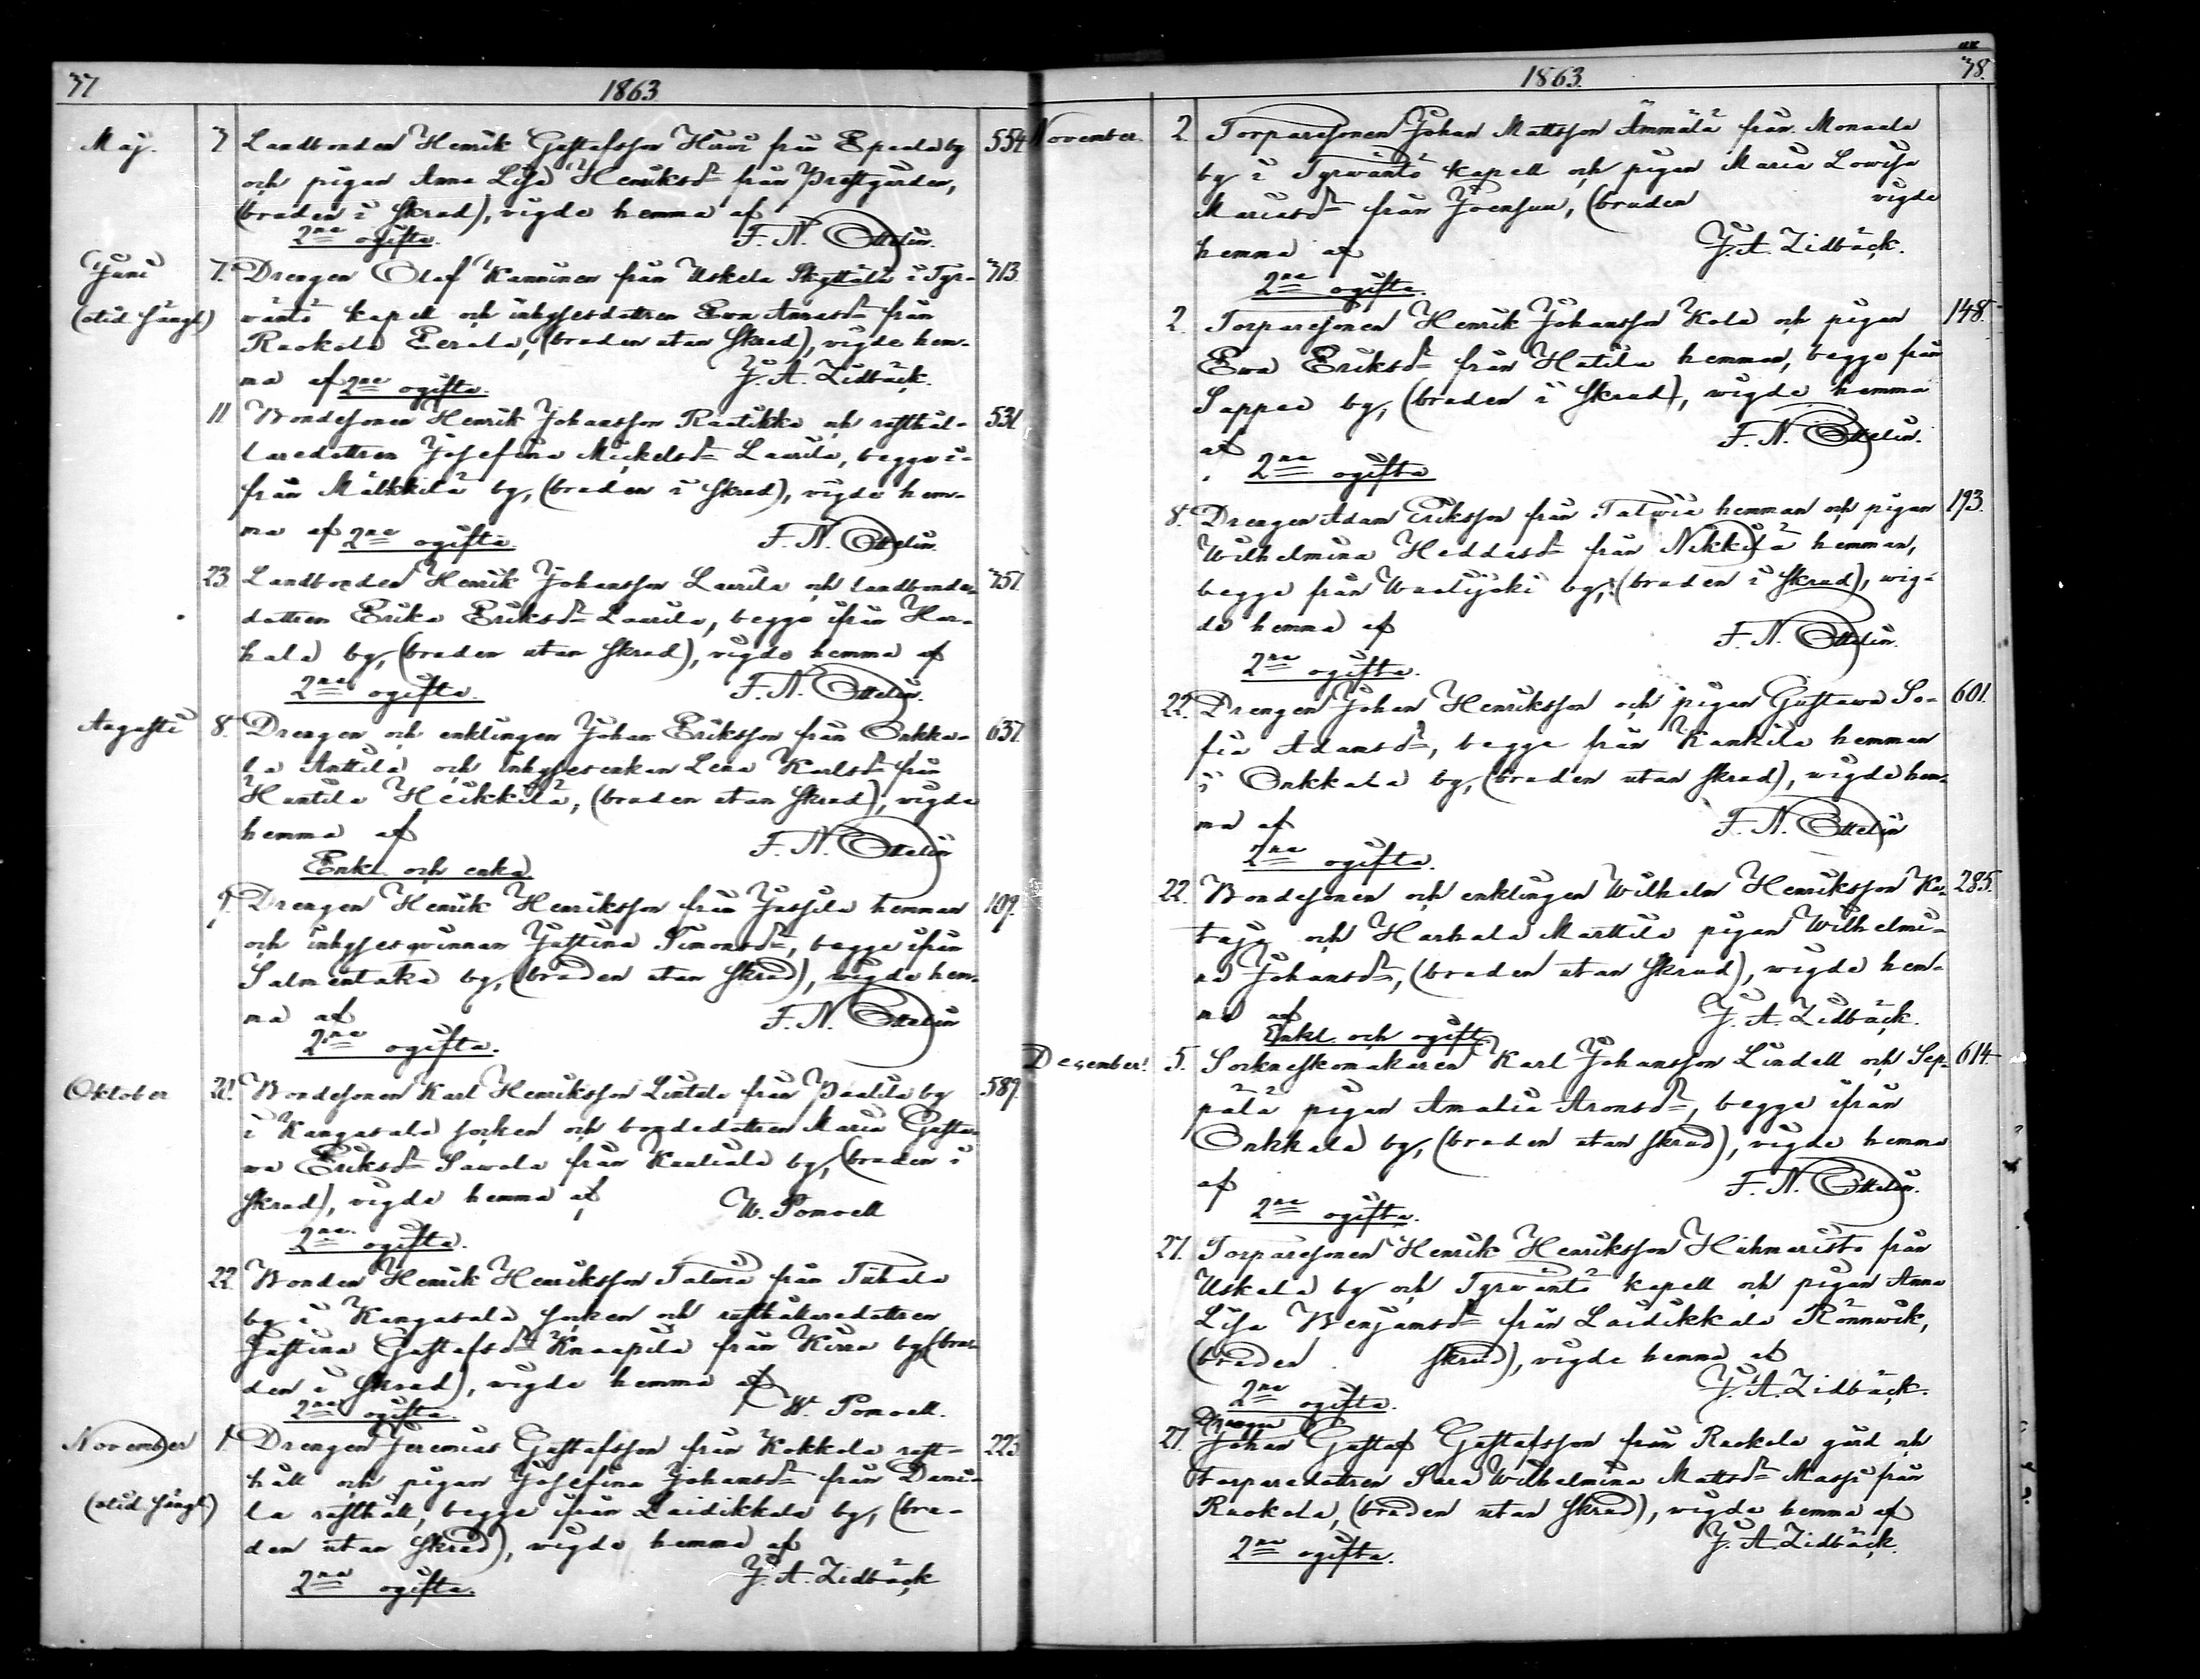 37
1863.
Maj. 3 Landbonden Henrik Gustafsson Hirvi från Epaala by 554
och pigan Anna Lisa Henriksdr från Prestgården,
(bruden i skrud), vigde hemma af
2ne ogifta. F. N. Ottelin.
Juni 7. Drengen Olof Kanninen från Uskela Skyttälä i Tyr- 713.
(otid sängl) wäntö kapell och inhysesdottren Ewa Annasdr från
Raukola Eerola, (bruden utan skrud), vigde hem-
ma af 2ne ogifta. J. A. Lidbäck.
11 Bondesonen Henrik Johansson Raatikka och rusthål- 531.
laredottren Josefina Mickelsdr Laurila, begge i-
från Mälkkilä by, (bruden i skrud), vigde hem-
ma af 2ne ogifta. F. N. Ottelin.
23. Landbonden Henrik Johansson Laurila och landbonde- 757.
dottren Erika Eriksdr Laurila, begge ifrån Har-
hala by, (bruden utan skrud), vigde hemma af
2ne ogifta. F. N. Ottelin.
Augusti 8. Drengen och enklingen Johan Eriksson från Onkka- 637.
la Anttila och inhysesenkan Lena Karlsdr från
Huntila Heikkilä, (bruden utan skrud), vigde
hemma af F. N. Ottelin
Enkl. och enka
9. Drengen Henrik Henriksson från Jussila hemman 109.
och inhysesqvinnan Justina Simonsdr, begge ifrån
Salmentaka by, (bruden utan skrud), wigde hem-
ma af F. N. Ottelin
2ne ogifta.
Oktober 22. Bondesonen Karl Henriksson Liutala från Paalila by 589.
i Kangasala socken och bondedottren Maria Gusta-
wa Eriksdr Sawola från Kaitiala by, (bruden i
skrud), vigde hemma af W. Pomoell
2ne ogifta.
22. Bonden Henrik Henriksson Talvia från Tiihala
by i Kangasala socken och rusthållaredottren
Justina Gustafsdr Knaapila från Kirra by, (bru-
den i skrud), wigde hemma af
2ne ogifta. W. Pomoell.
November 1. Drengen Jeremias Gustafsson från Kokkola rust- 223
håll och pigan Josefina Johansdr från Dani-
(otid sängl) la rusthåll, begge ifrån Laidikkala by, (bru-
den utan skrud), wigde hemma af
2ne ogifta. J. A. Lidbäck
38.
1863.
November. 2. Torparesonen Johan Mattsson Ämmälä från Monaala
by i Tyrwäntö kapell och pigan Maria Lowisa
Mariasdr från Joensuu, (bruden vigde
hemma af J. A. Lidbäck.
2ne ogifta.
2. Torparesonen Henrik Johansson Kola och pigan 148.
Ewa Eriksdr från Hatila hemman, begge från
Sappee by, (bruden i skrud), wigde hemma
af F. N. Ottelin.
2ne ogifta
8. Drengen Adam Eriksson från Talwia hemman och pigan 193.
Wilhelmina Heddasdr från Nikkilä hemman,
begge från Waalijoki by, (bruden i skrud), wig-
de hemma af F. N. Ottelin.
2ne ogifta.
22. Drengen Johan Henriksson och pigan Gustawa So- 601.
fia Adamsdr, begge från Kankila hemman
i Onkkala by, (bruden utan skrud), wigde hem-
ma af F. N. Ottelin
2ne ogifta.
22. Bondesonen och enklingen Wilhelm Henriksson Ka- 285.
taja och Harhala Marttila pigan Wilhelmi-
na Johansdr, (bruden utan skrud), wigde hem-
ma af J. A. Lidbäck.
Enkl. och ogift.
December. 5. Sockneskomakaren Karl Johansson Lindell och Sep- 614
pälä pigan Amalia Aronsdr, begge ifrån
Onkkala by, (bruden utan skrud), vigde hemma
af F. N. Ottelin.
2ne ogifta.
27. Torparesonen Henrik Henriksson Hihnaristo från
Uskela by och Tyrwäntö kapell och pigan Anna
Lisa Benjamsdr från Laidikkala Rönnwik,
(bruden skrud), vigde hemma af
2ne ogifta. J. A. Lidbäck.
Drengen
27. Johan Gustaf Gustafsson från Raukola gård och
torparedottren Sara Wilhelmina Mattsdr Massi från
Raukola, (bruden utan skrud), vigde hemma af
2ne ogifta. J. A. Lidbäck.